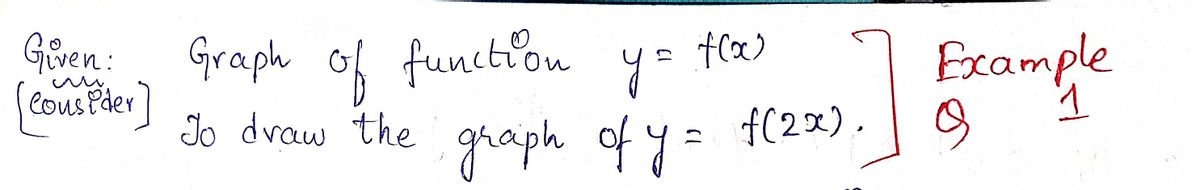 Given: Graph of function y = f(x)
[Consider]
To draw the graph of y = f(2x).
Example
Q 1